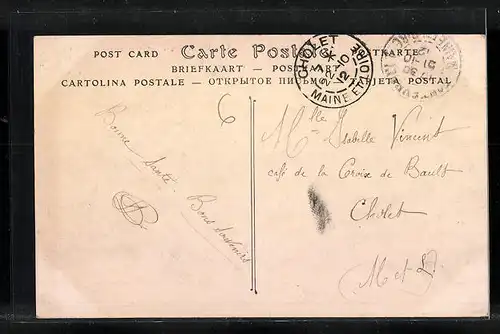 POST CARD Carte Postale POSTKARTE
BRIEFKAART — POSTKAART
CARTOLINA POSTALE — ОТКРЫТОЕ ПИСЬМО — TARJETA POSTAL
CHOLET
12
MAINE ET LOIRE
6
Bonne Santé.
Bons Souvenirs
B
Melle Isabelle Vincent
café de la Croix de Bault
Cholet
M et L